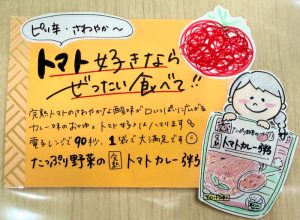 ピリ辛・さわやか〜
トマト好きなら
ぜったい食べて!!
完熟トマトのさわやかな酸味が口いっぱいに広がる
カレー味のおかゆ。トマト好きはハマります
電子レンジで90秒、1袋で大満足です
たっぷり野菜の完熟トマトカレー粥
たっぷり野菜の
完熟トマトカレー粥